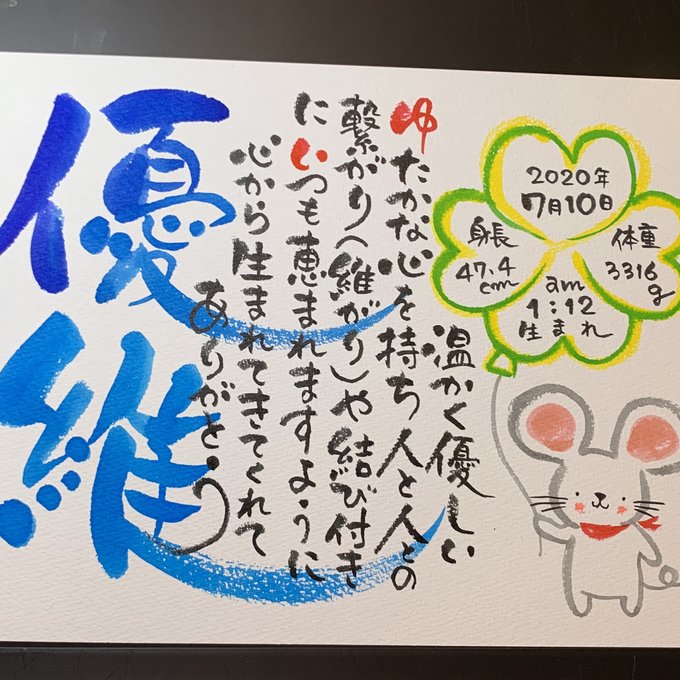 優維
温かく優しい
ゆたかな心を持ち人と人との
繋がり(維がり)や結び付き
にいつも恵まれますように
心から生まれてきてくれて
ありがとう
2020年
7月10日
身長
47.4
cm
体重
3316
g
am
1:12
生まれ